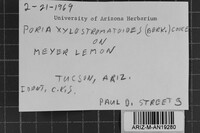 2-21-1969
University of Arizona Herbarium
PORIA XYLOSTROMATOIDES (BERK.) COOKE
ON
MEYER LEMON
TUCSON, ARIZ.
PAUL D. STREETS
ARIZ-M-AN19280